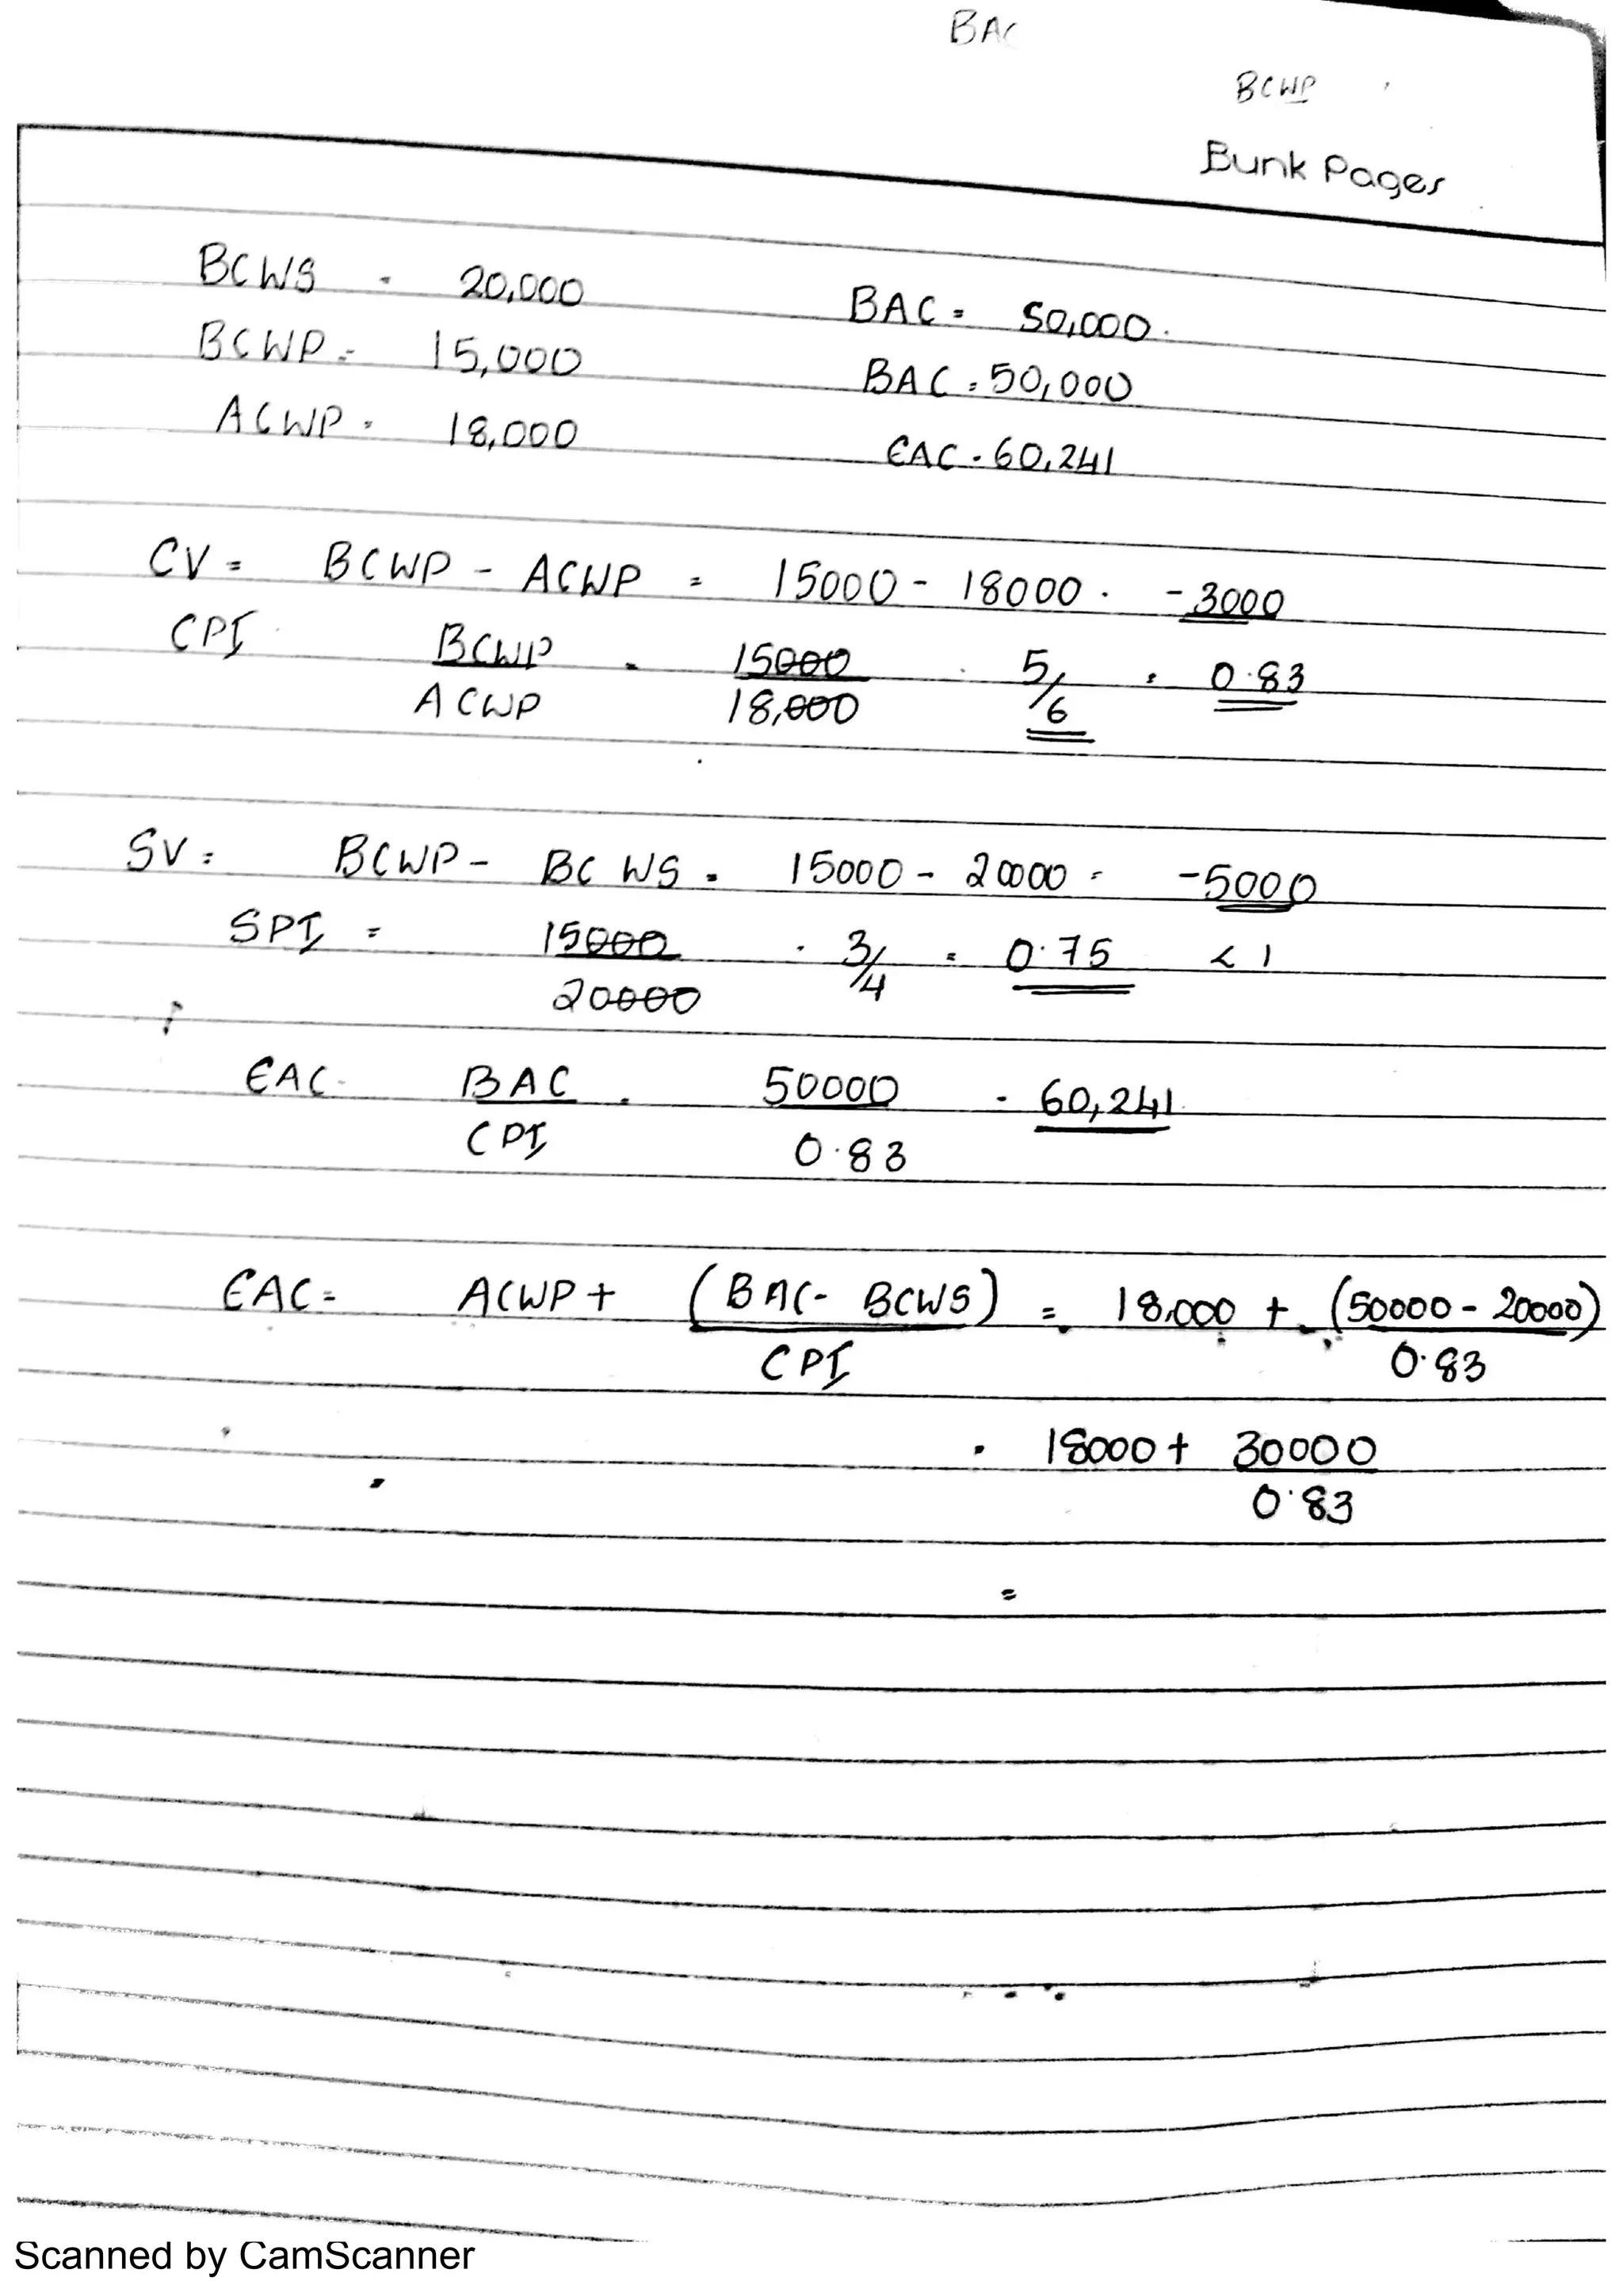 BAC
BCWP
Bunk Pages
BCWS = 20,000
BAC = 50,000.
BCWP = 15,000
BAC = 50,000
ACWP = 18,000
EAC = 60,241
CV = BCWP - ACWP = 15000 - 18000 = -3000
CPI = BCWP / ACWP = 15000 / 18,000 = 5/6 = 0.83
SV = BCWP - BCWS = 15000 - 20000 = -5000
SPI = 15000 / 20000 = 3/4 = 0.75 < 1
EAC = BAC / CPI = 50000 / 0.83 = 60,241
EAC = ACWP + (BAC - BCWS) / CPI = 18,000 + (50000 - 20000) / 0.83
= 18000 + 30000 / 0.83
=
Scanned by CamScanner